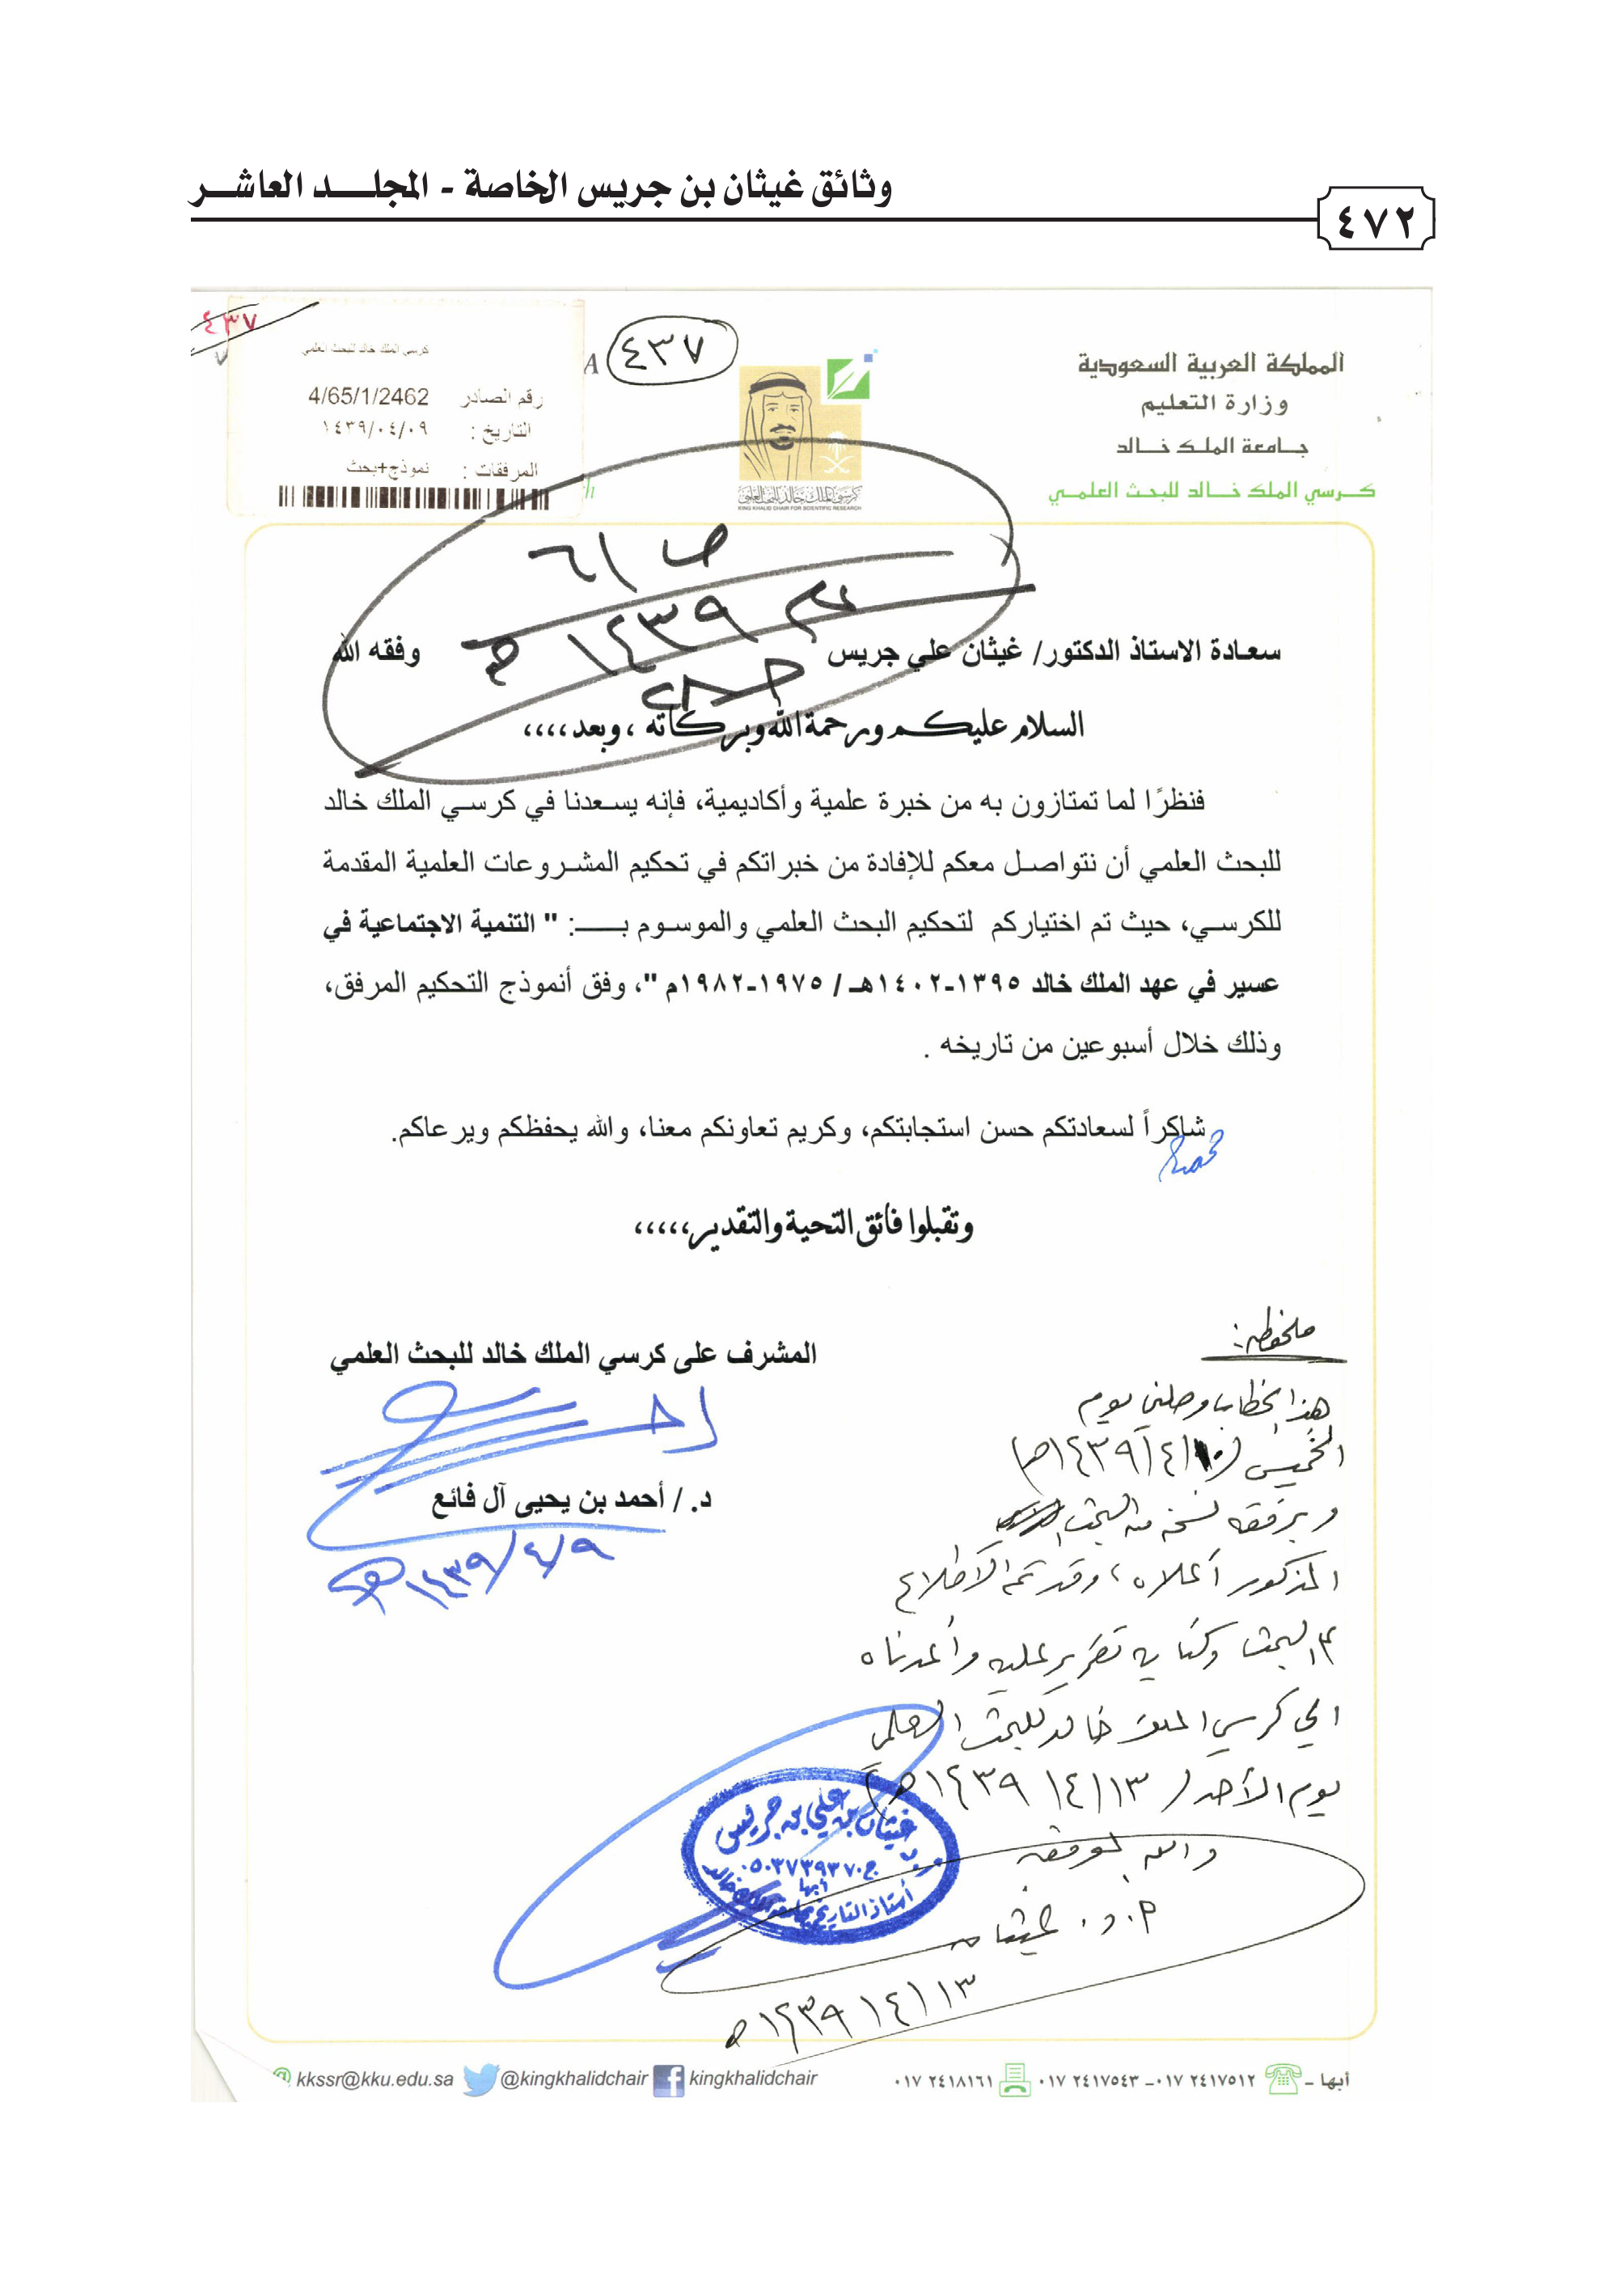 وثائق غيثان بن جريس الخاصة - المجلد العاشر
٤٧٢
٤٣٧
٤٣٧
المملكة العربية السعودية
وزارة التعليم
جامعة الملك خالد
كرسي الملك خالد للبحث العلمي
كرسي الملك خالد للبحث العلمي
KING KHALID CHAIR FOR SCIENTIFIC RESEARCH
كرسي الملك خالد للبحث العلمي
رقم الصادر 4/65/1/2462
التاريخ : ١٤٣٩/٠٤/٠٩
المرفقات : نموذج+بحث
ص ٦١
١٤٣٩هـ
سعادة الاستاذ الدكتور/ غيثان علي جريس وفقه الله
السلام عليكم ورحمة الله وبركاته ، وبعد ،،،،
فنظرًا لما تمتازون به من خبرة علمية وأكاديمية، فإنه يسعدنا في كرسي الملك خالد
للبحث العلمي أن نتواصل معكم للإفادة من خبراتكم في تحكيم المشروعات العلمية المقدمة
للكرسي، حيث تم اختياركم لتحكيم البحث العلمي والموسوم بـــــ: " التنمية الاجتماعية في
عسير في عهد الملك خالد ١٣٩٥-١٤٠٢هـ / ١٩٧٥-١٩٨٢م "، وفق أنموذج التحكيم المرفق،
وذلك خلال أسبوعين من تاريخه .
شاكراً لسعادتكم حسن استجابتكم، وكريم تعاونكم معنا، والله يحفظكم ويرعاكم.
وتقبلوا فائق التحية والتقدير،،،،،
المشرف على كرسي الملك خالد للبحث العلمي
د. / أحمد بن يحيى آل فائع
١٤٣٩/٤/٩هـ
ملحوظة:
هذا الخطاب وصلني يوم
الخميس (١٠/٤/١٤٣٩هـ)
وبرفقه نسخة من البحث
المذكور أعلاه، وقد تم الاطلاع
البحث وكتابة تقرير عليه وأعدناه
الى كرسي الملك خالد للبحث العلمي
يوم الأحد (١٣/٤/١٤٣٩هـ)
والله الموفق
أ.د. غيثان
١٣/٤/١٤٣٩هـ
غيثان بن علي بن جريس
ج٠٥٠٣٧٣٩٣٧٠
أبها
أستاذ التاريخ بجامعة الملك خالد
أبها - ٠١٧ ٢٤١٧٥١٢ - ٠١٧ ٢٤١٧٥٤٣ ٠١٧ ٢٤١٨١٦١
kingkhalidchair
@kingkhalidchair
@ kkssr@kku.edu.sa